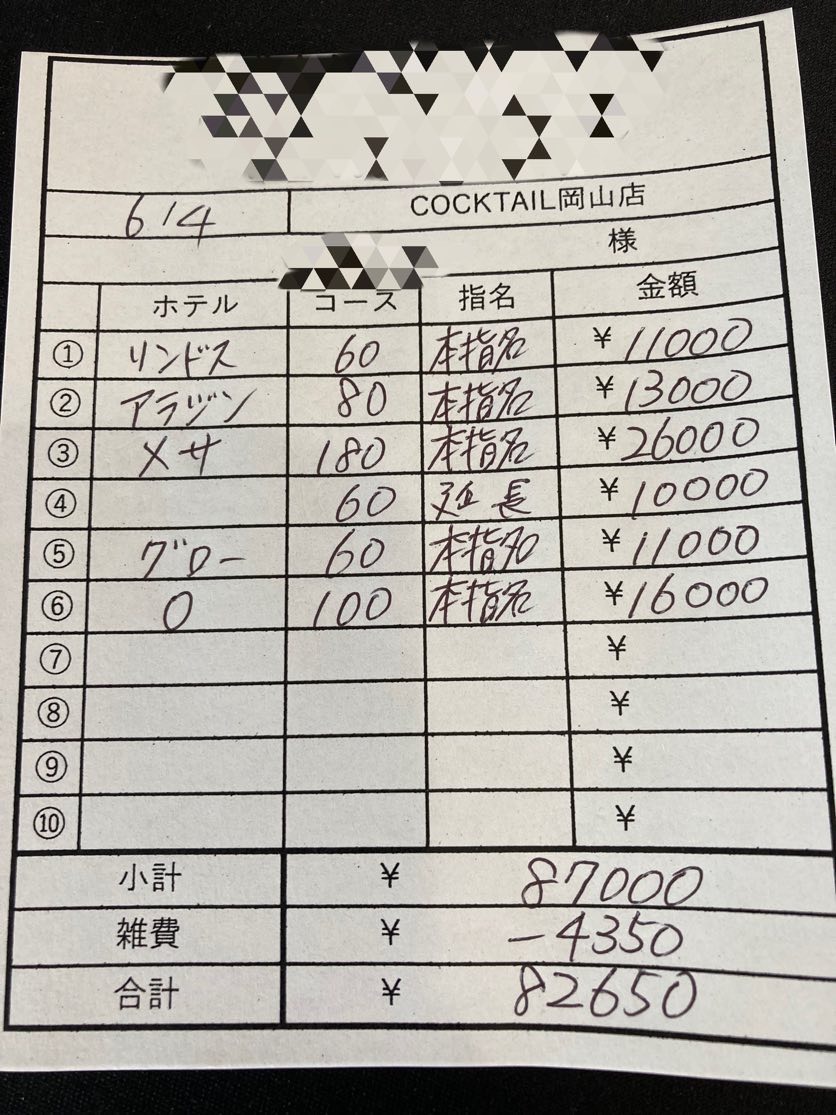 614 COCKTAIL岡山店
様
ホテル コース 指名 金額
① リンドス 60 本指名 ¥11000
② アラジン 80 本指名 ¥13000
③ メサ 180 本指名 ¥26000
④ 60 延長 ¥10000
⑤ グロー 60 本指名 ¥11000
⑥ O 100 本指名 ¥16000
⑦ ¥
⑧ ¥
⑨ ¥
⑩ ¥
小計 ¥ 87000
雑費 ¥ -4350
合計 ¥ 82650